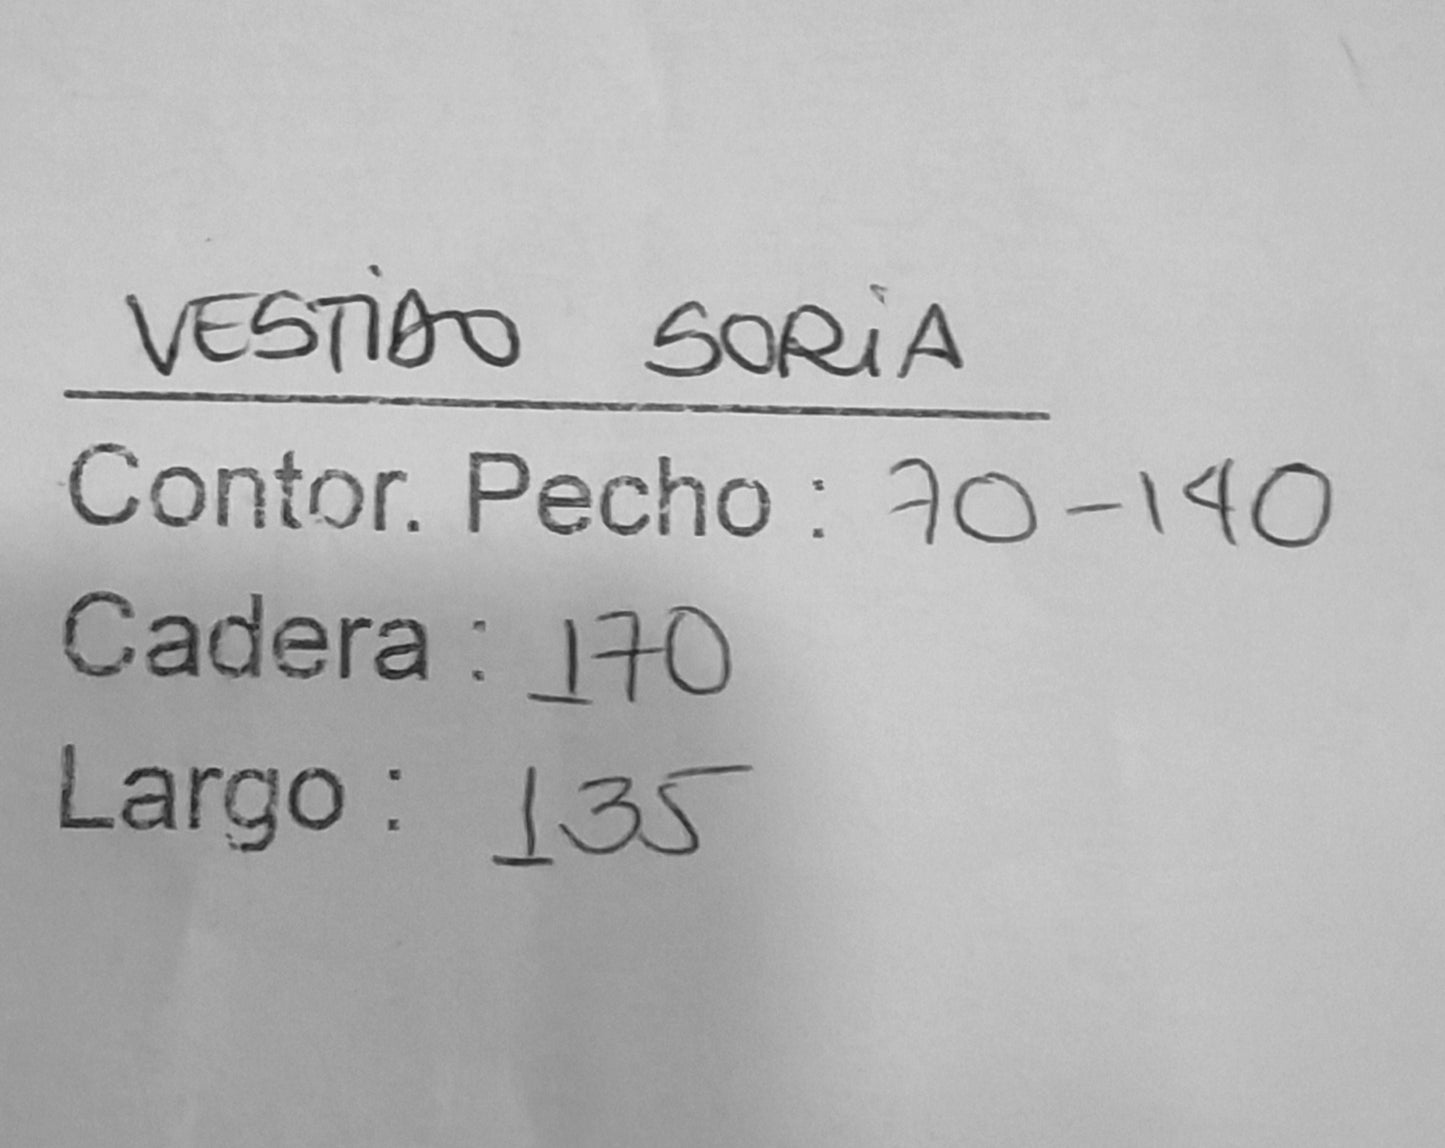 VESTIDO SORiA
Contor. Pecho : 70-140
Cadera : 170
Largo : 135